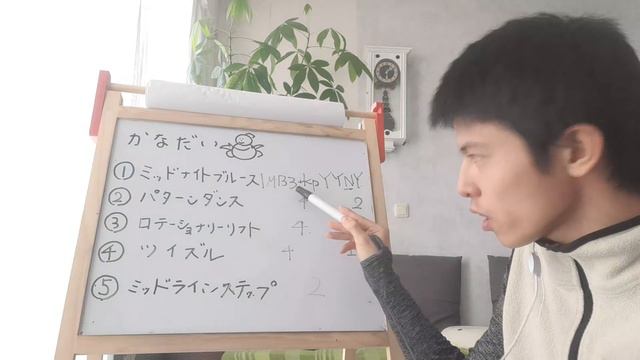 かなだい
① ミッドナイトブルース 1MB3+kpYYNY
② パターンダンス 2
③ ロテーショナリーリフト 4
④ ツイズル 4
⑤ ミッドラインステップ 2